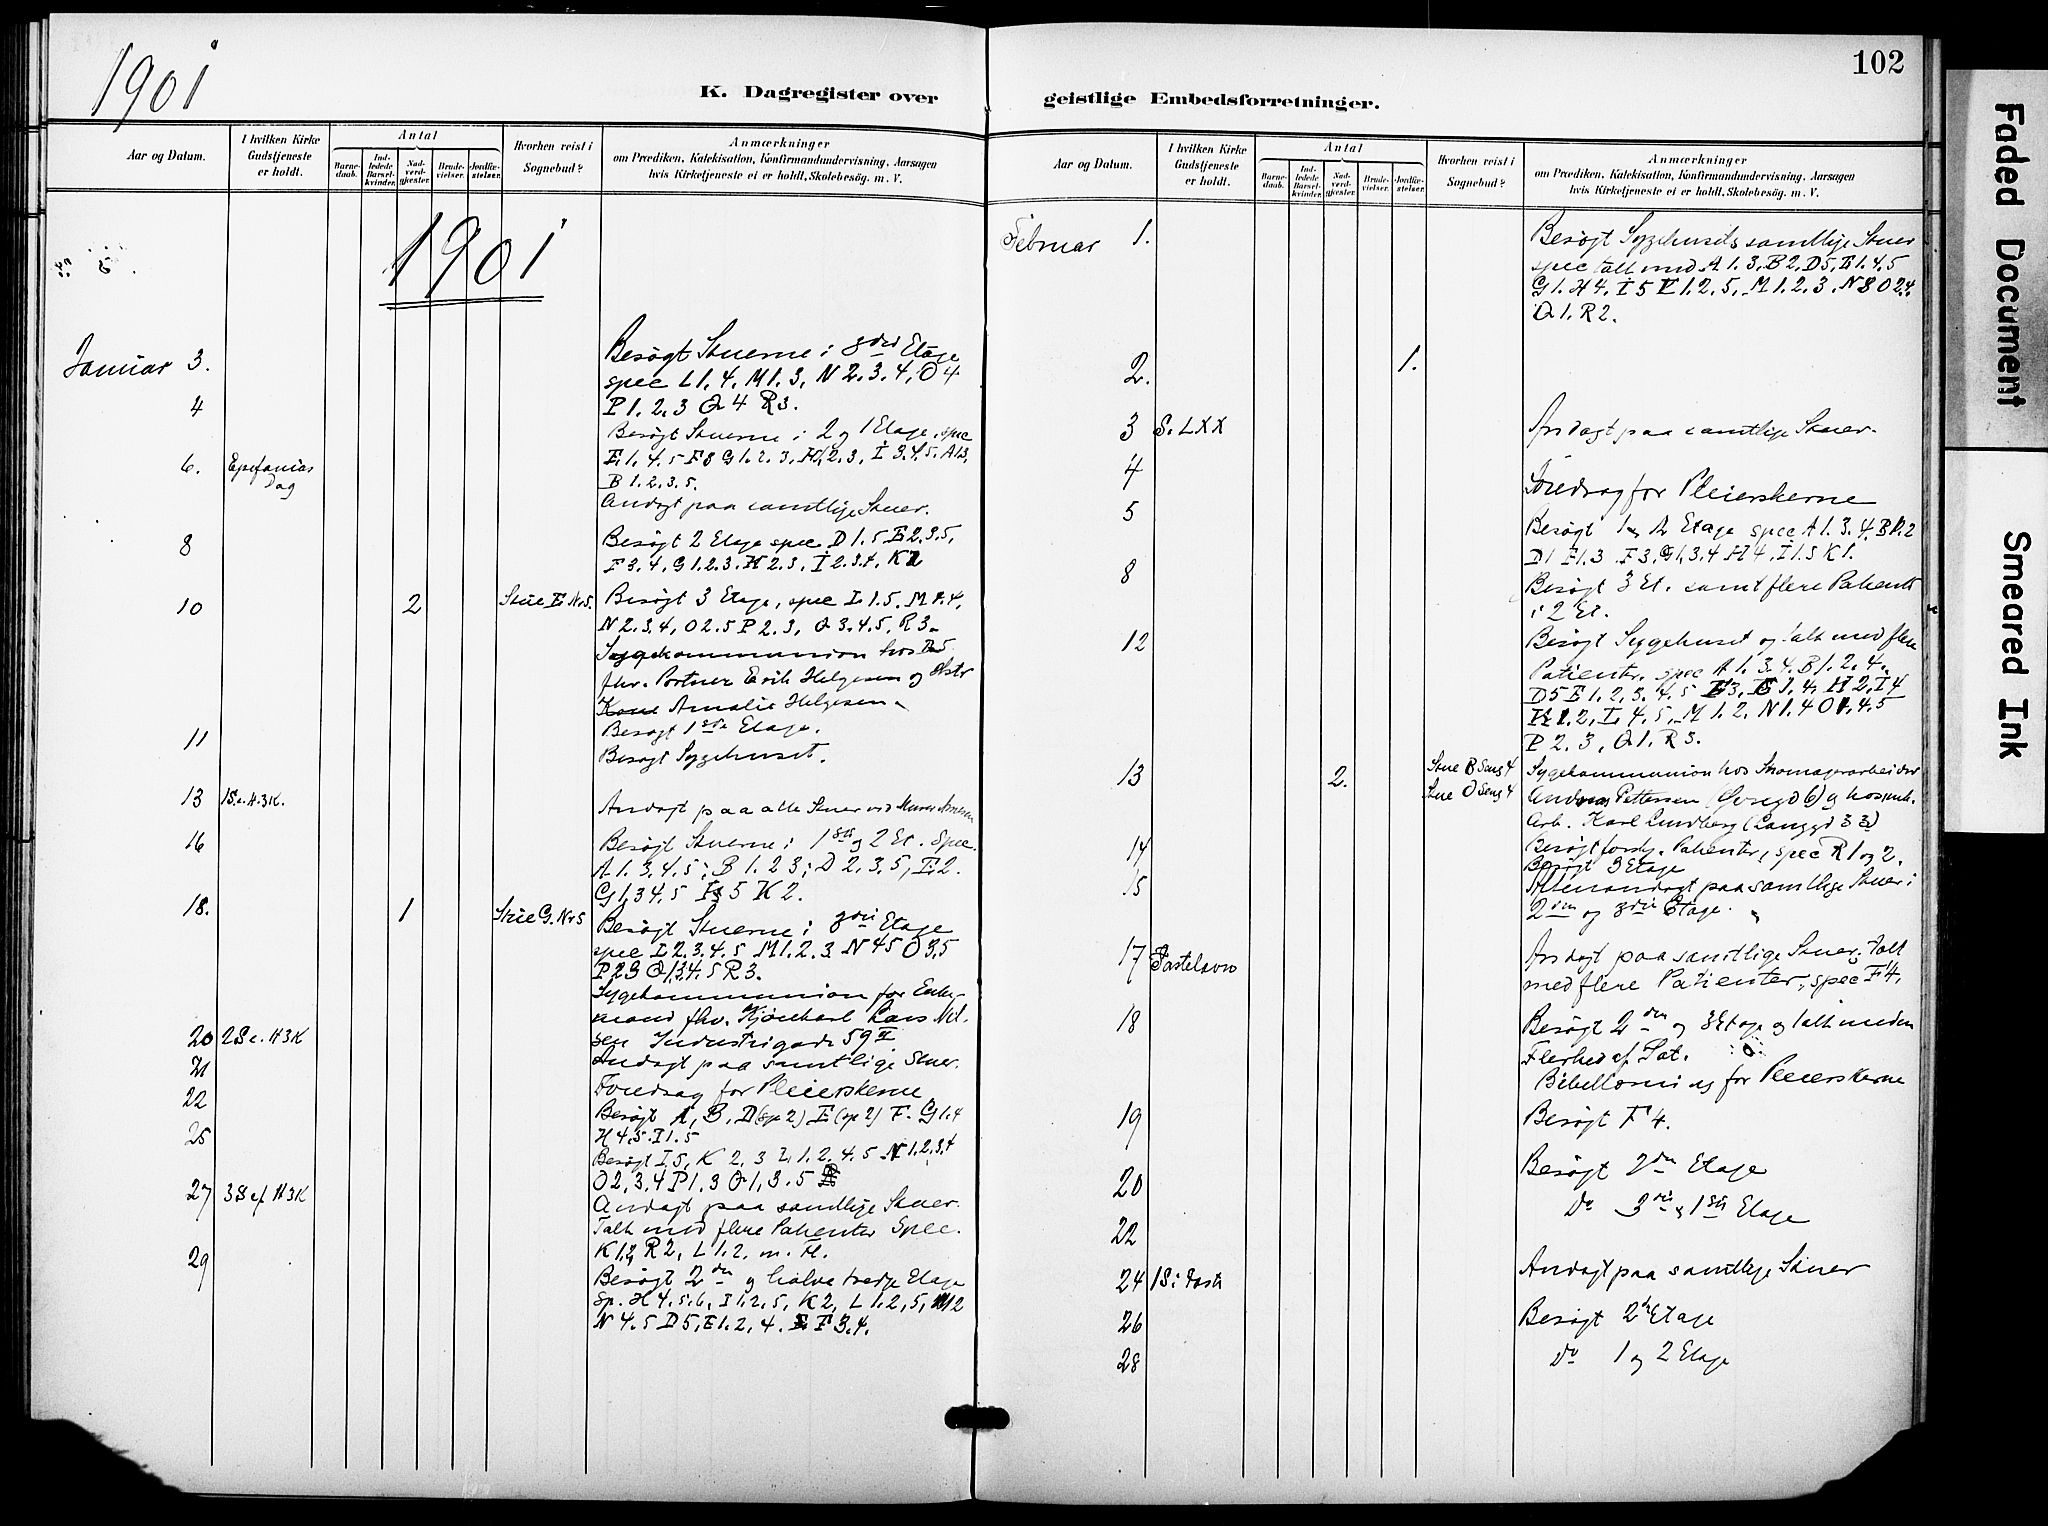 1901
K. Dagregister over
Aar og Datum.
I hvilken Kirke Gudstjeneste er holdt.
Antal
Barnedaab.
Indledede Barselkvinder.
Nadverdgjester.
Brudevielser.
Jordfæstelser.
Hvorhen reist i Sognebud?
Anmærkninger
om Prædiken, Katekisation, Konfirmandundervisning, Aarsagen
hvis Kirketjeneste ei er holdt, Skolebesøg. m. V.
1901
Januar 3.
Besøgt Stuerne i 3die Etage
spec L 1. 4. M 1. 3, N 2. 3. 4, O 4
P 1. 2. 3 Q 4 R 3.
4
Besøgt Stuerne i 2 og 1 Etage, spec
E. 1. 4. 5 F 3 G 1. 2. 3, H. 2. 3, I 3. 4. 5.
B 1. 2. 3. 5.
6. Epifanias Dag
Andagt paa samtlige Stuer.
8
Besøgt 2 Etage spec D 1. 5 E 2. 3. 5,
F 3. 4, G 1. 2. 3. H 2. 3, I 2. 3. 4, K 2
10 2 Stue E Nr 5.
Besøgt 3 Etage, spec L 1. 5. M 4,
N 2. 3. 4, O 2. 5 P 2. 3, Q 3. 4. 5, R 3.
Sygekommunion hos
fhv. Portner Erik Helgesen og Hstr
Kone Amalie Helgesen.
11
Besøgt 1ste Etage.
Besøgt Sygehuset.
13 1 S. e. H. 3 K.
Andagt paa alle Stuer ved
16
Besøgt Stuerne i 1ste og 2 Et. Spec.
A 1. 3. 4. 5; B 1. 2 3; D 2. 3. 5, E 2.
G 1, 3 4. 5 5 K 2.
18. 1 Stue G. Nr 5
Besøgt Stuerne i 3die Etage
spec L 2. 3. 4. 5 M 1. 2. 3 N 4 5 O 3. 5
P 2 3 Q 1. 3. 4. 5 R 3.
Sygekommunion for Enke-
mand fhv. Lars Nil-
sen Industrigade 59 II
20 2 S e. H 3 K
Andagt paa samtlige Stuer.
21
Foredrag for Pleierskerne
22
Besøgt A, B, D (sp 2) E (sp 2) F. G 1. 4
H 4. 5. I 1. 5
25
Besøgt I. 5, K 2. 3 L 1. 2. 4. 5 N 1. 2. 3. 4
O 2. 3. 4 P 1. 3 Q 1, 3. 5
27 3 S ef H 3 K
Andagt paa samtlige Stuer.
Talt med flere Patienter Spec.
K 1. 2, R 2, L 1. 2. m. fl.
29
Besøgt 2den og halve tredje Etage
Sp. H 4. 5. 6, I 1. 2. 5, K 2, L 1. 2, 5, M 2
N 4. 5 D 5, E 1. 2, 4. F 3. 4.
102
geistlige Embedsforretninger.
Aar og Datum.
I hvilken Kirke Gudstjeneste er holdt.
Antal
Barnedaab.
Indledede Barselkvinder.
Nadverdgjester.
Brudevielser.
Jordfæstelser.
Hvorhen reist i Sognebud?
Anmærkninger
om Prædiken, Katekisation, Konfirmandundervisning, Aarsagen
hvis Kirketjeneste ei er holdt, Skolebesøg. m. V.
Februar 1.
Besøgt Sygehusets samtlige Stuer
spec talt med A 1. 3, B 2, D 5, E 1. 4. 5
G 1. H 4. I 5 K 1. 2. 5, M 1. 2. 3. N 3 O 2. 4.
Q 1. R 2.
2. 1.
3 S. LXX
Andagt paa samtlige Stuer.
4
Foredrag for Pleierskerne
5
Besøgt 1 og 2 Etage spec A 1. 3. 4. B 1. 2
D 1 E 1. 3 F 3, G 1. 3. 4 H 4, I 1. 5 K 1.
8
Besøgt 3 Et. samt flere Patienter
i 2 Et.
12
Besøgt Sygehuset og talt med flere
Patienter, spec A 1. 3. 4. B 1. 2. 4.
D 5 E 1. 2. 3. 4. 5 F 3. G 1. 4. H 2. I 4
K 1. 2, L 4. 5, M 1. 2. N 1. 4 O 1. 4. 5
P 2. 3, Q 1. R 3.
13 2. Stue B Seng 4
Stue O Seng 4
Sygekommunion hos Skomagerarbeider
Andreas Pettersen og hos
Arb. Karl Lundberg (Langgd 33)
14
Besøgt forskj. Patienter, spec R 1 og 2.
Besøgt 3 Etage
15
Aftenandagt paa samtlige Stuer i
2den og 3die Etage.
17 Fastelavn
Andagt paa samtlige Stuer. Talt
med flere Patienter, spec F 4.
18
Besøgt 2den og 3 Etage og talt med en
Flerhed af Pat.
Bibellæsning for Pleierskerne
19
Besøgt F 4.
20
Besøgt 2den Etage
22
Do 3die og 1ste Etage
24 1 S. i Faste
Andagt paa samtlige Stuer
26
Besøgt 2 Etage
28
Do 1 og 2 Etage
Faded Document
Smeared Ink